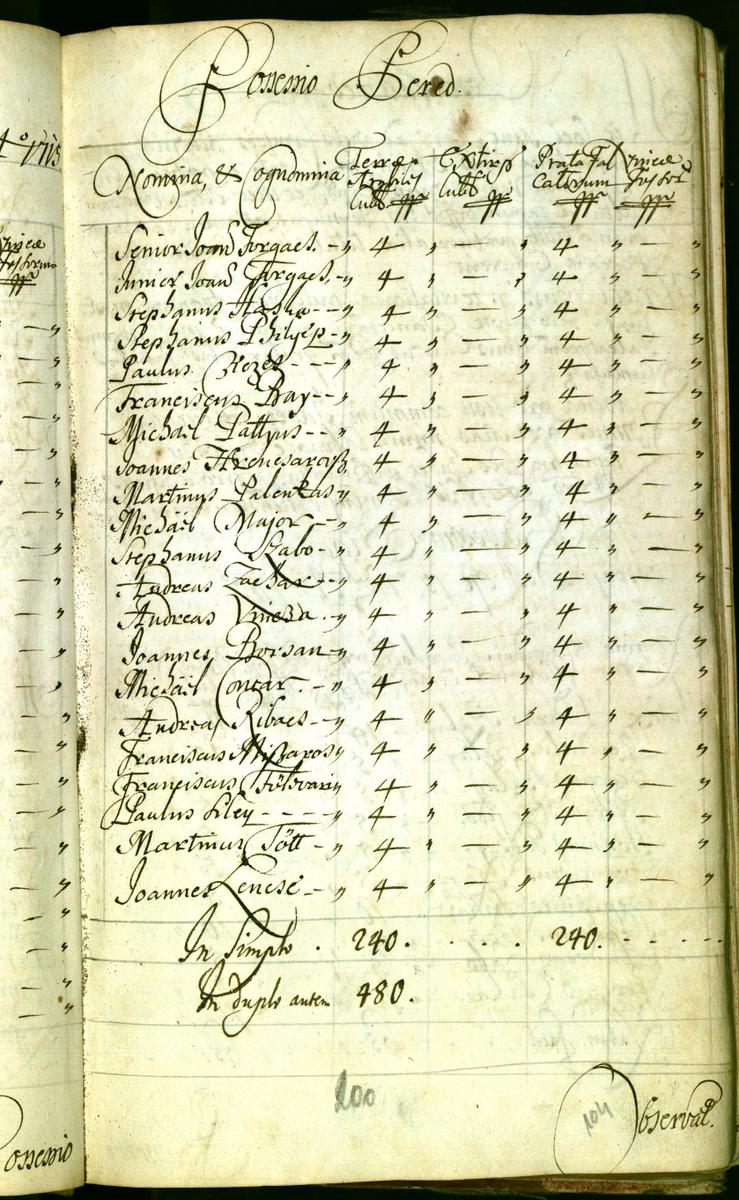 Possessio Bered.
Nomina, & Cognomina Terræ Arabiles Cub. Extirp. Cub. Prata Falcatorum Vineæ Fossor.
Senior Joan Forgacs. - „ 4 „ — „ 4 „ — „
Junior Joan Forgacs. - „ 4 „ — „ 4 „ — „
Stephanus - - „ 4 „ — „ 4 „ — „
Stephanus Philyep - „ 4 „ — „ 4 „ — „
Paulus - - - „ 4 „ — „ 4 „ — „
Franciscus Bay - - „ 4 „ — „ 4 „ — „
Michael Pattyus - - „ 4 „ — „ 4 „ — „
Joannes „ 4 „ — „ 4 „ — „
Martinus Palenkas „ 4 „ — „ 4 „ — „
Michäel Major - „ 4 „ — „ 4 „ — „
Stephanus Szabo - „ 4 „ — „ 4 „ — „
Andreas Zachar - „ 4 „ — „ 4 „ — „
Andreas Vincza - „ 4 „ — „ 4 „ — „
Joannes Borsan - „ 4 „ — „ 4 „ — „
Michäel - „ 4 „ — „ 4 „ — „
Andreas Ribacs - „ 4 „ — „ 4 „ — „
Franciscus Miszaros „ 4 „ — „ 4 „ — „
Franciscus Földvari „ 4 „ — „ 4 „ — „
Paulus - - - - „ 4 „ — „ 4 „ — „
Martinus Tött - „ 4 „ — „ 4 „ — „
Joannes Lencsé - „ 4 „ — „ 4 „ — „
In Simplo . 240. . . . . 240. . . . .
In duplo autem 480.
200
104
Observat.
Possessio